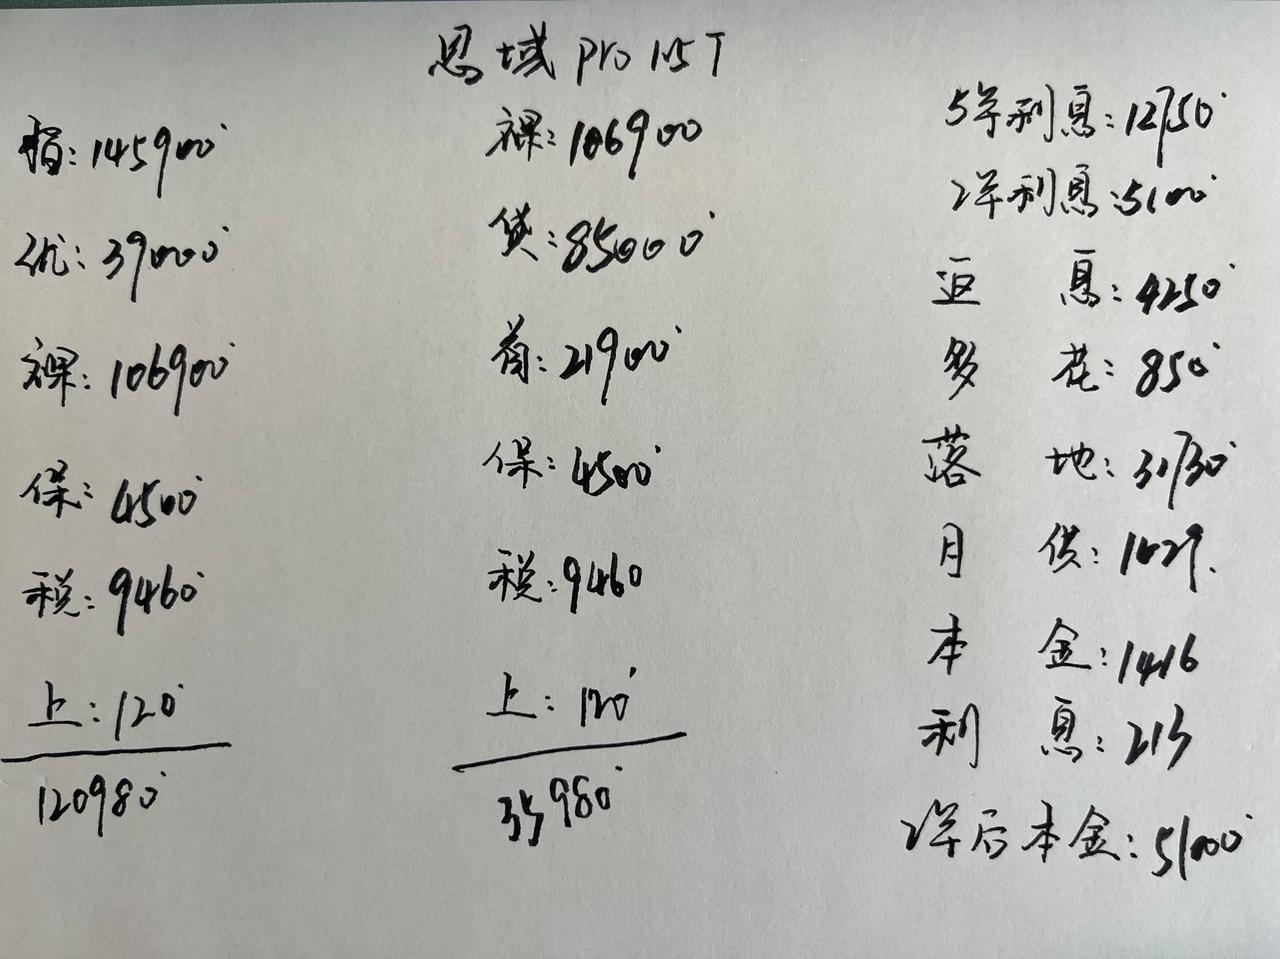 思域 pro 1.5T
指: 145900
优: 39000
裸: 106900
保: 4500
税: 9460
上: 120
120980
裸: 106900
贷: 85000
首: 21900
保: 4500
税: 9460
上: 120
35980
5年利息: 12750
2年利息: 5100
返息: 4250
多花: 850
落地: 31730
月供: 1629.
本金: 1416
利息: 213
2年后本金: 51000